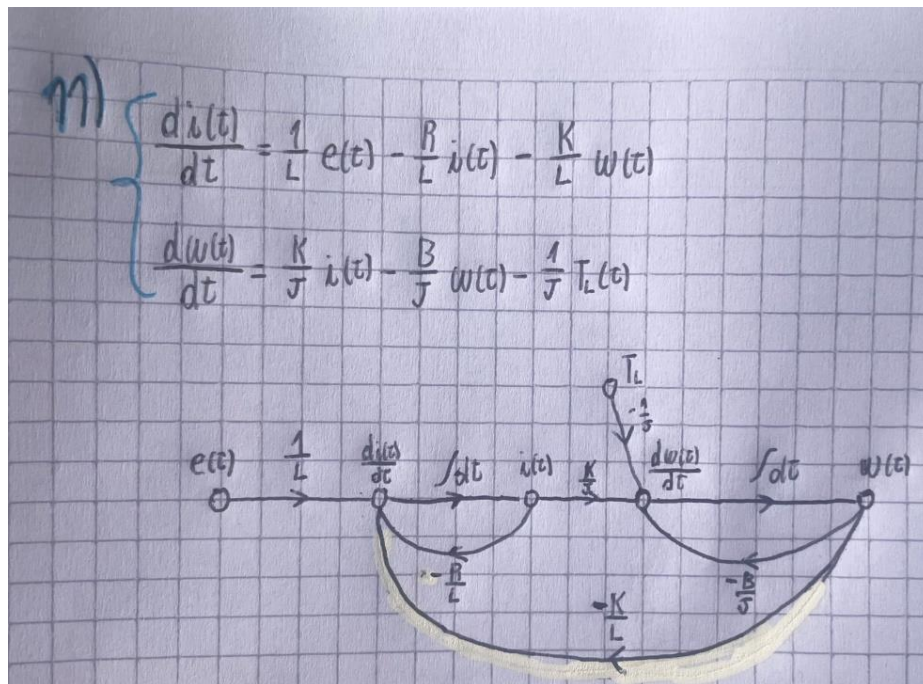 11)
di(t)/dt = 1/L e(t) - R/L i(t) - K/L w(t)
dw(t)/dt = K/J i(t) - B/J w(t) - 1/J T_L(t)
T_L
-1/J
e(t) 1/L di(t)/dt ∫dt i(t) K/J dw(t)/dt ∫dt w(t)
-R/L -B/J
-K/L